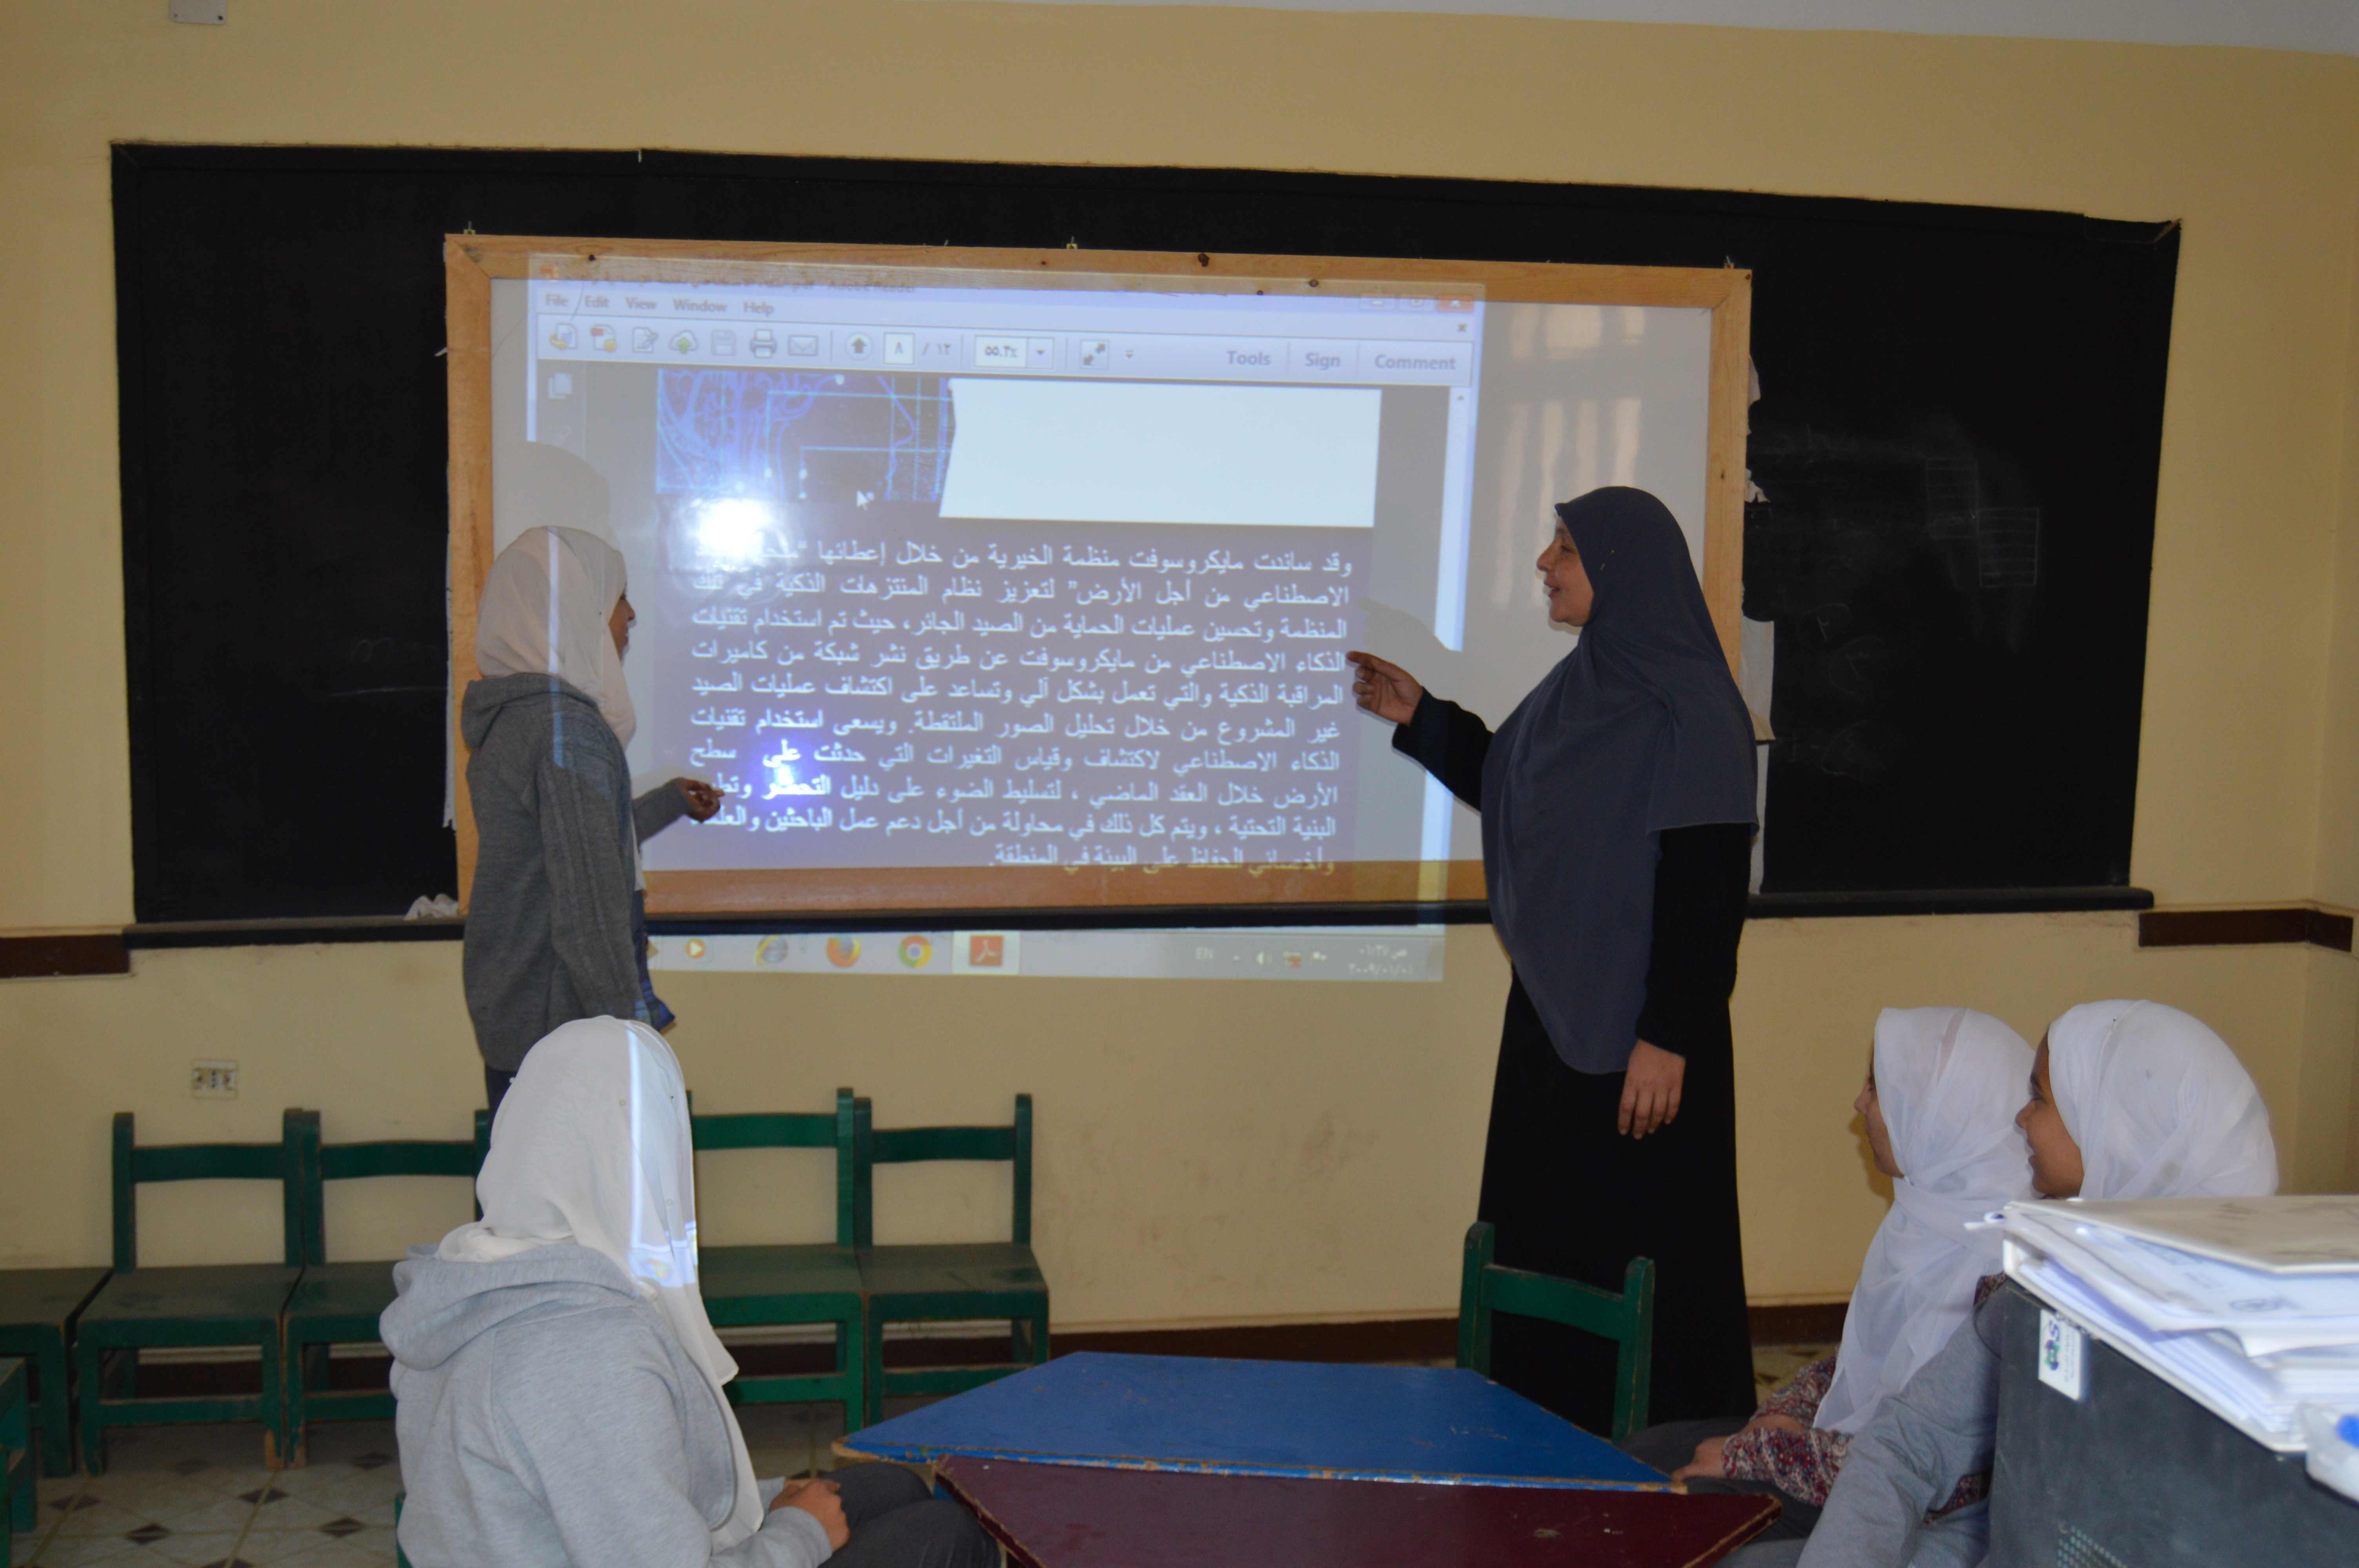 Adobe Reader
File Edit View Window Help
٨ / ١٣ ٥٥.٣% Tools Sign Comment
وقد ساندت مايكروسوفت منظمة الخيرية من خلال إعطائها
الاصطناعي من أجل الأرض" لتعزيز نظام المنتزهات الذكية في تلك
المنظمة وتحسين عمليات الحماية من الصيد الجائر، حيث تم استخدام تقنيات
الذكاء الاصطناعي من مايكروسوفت عن طريق نشر شبكة من كاميرات
المراقبة الذكية والتي تعمل بشكل آلي وتساعد على اكتشاف عمليات الصيد
غير المشروع من خلال تحليل الصور الملتقطة. ويسعى استخدام تقنيات
الذكاء الاصطناعي لاكتشاف وقياس التغيرات التي حدثت على سطح
الأرض خلال العقد الماضي ، لتسليط الضوء على دليل التحضر
البنية التحتية ، ويتم كل ذلك في محاولة من أجل دعم عمل الباحثين
وأخصائي الحفاظ على البيئة في المنطقة.
EN
٠٦:٣٧ ص
٢٠٠٩/٠١/٠١